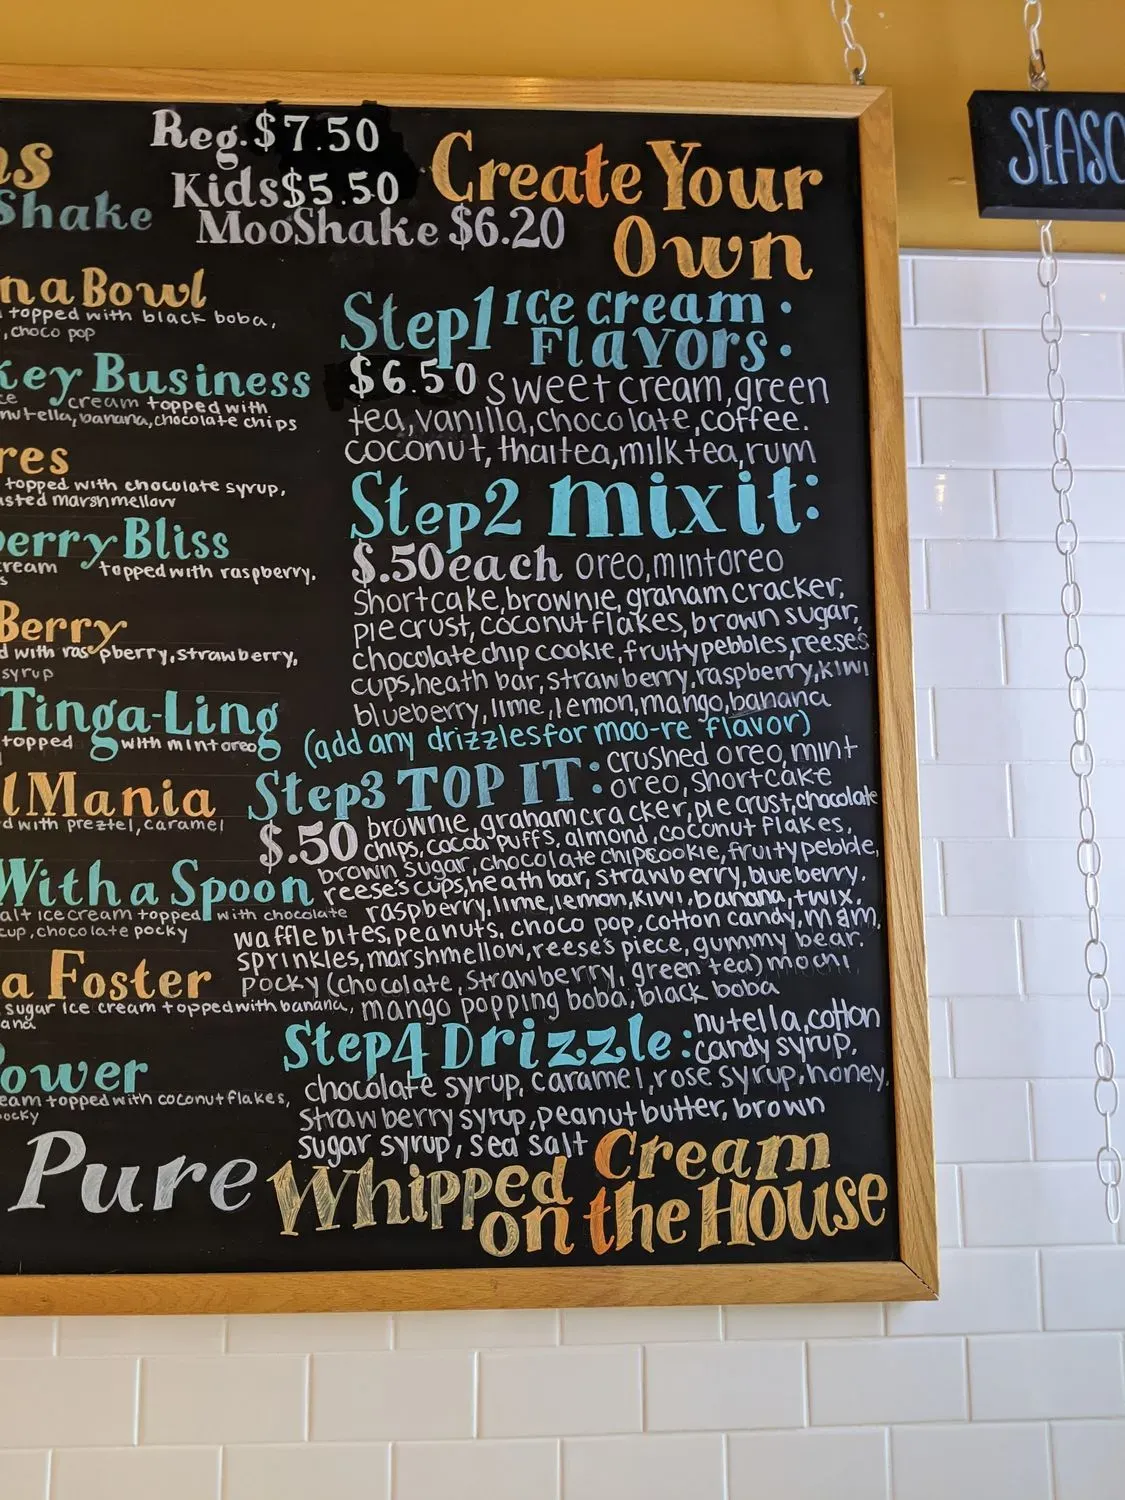 Reg. $7.50
Kids $5.50
Shake
MooShake $6.20
na Bowl
topped with black boba,
, choco pop
key Business
cream topped with
nutella, banana, chocolate chips
res
topped with chocolate syrup,
sted marshmellow
berry Bliss
cream topped with raspberry,
Berry
d with raspberry, strawberry,
syrup
Tinga-Ling
topped with mint oreo
l Mania
d with preztel, caramel
With a Spoon
alt ice cream topped with chocolate
cup, chocolate pocky
a Foster
sugar ice cream topped with banana,
ana
Power
eam topped with coconut flakes,
pocky
Pure
Create Your
Own
Step 1 Ice cream :
Flavors :
$6.50 sweet cream, green
tea, vanilla, chocolate, coffee.
coconut, thai tea, milk tea, rum
Step 2 mix it:
$.50 each oreo, mint oreo
shortcake, brownie, graham cracker,
pie crust, coconut flakes, brown sugar,
chocolate chip cookie, fruity pebbles, reese's
cups, heath bar, strawberry, raspberry, kiwi
blueberry, lime, lemon, mango, banana
(add any drizzles for moo-re flavor)
Step 3 TOP IT: crushed oreo, mint
oreo, shortcake
$.50 brownie, graham cracker, pie crust, chocolate
chips, cocoa puffs, almond, coconut flakes,
brown sugar, chocolate chip cookie, fruity pebble,
reese's cups, heath bar, strawberry, blueberry.
raspberry, lime, lemon, kiwi, banana, twix.
waffle bites, peanuts, choco pop, cotton candy, m&m,
sprinkles, marshmellow, reese's piece, gummy bear.
pocky (chocolate, strawberry, green tea) mochi
mango popping boba, black boba
Step 4 Drizzle: nutella, cotton
candy syrup,
chocolate syrup, caramel, rose syrup, honey,
strawberry syrup, peanut butter, brown
sugar syrup, sea salt
Whipped Cream
on the House
SEASO